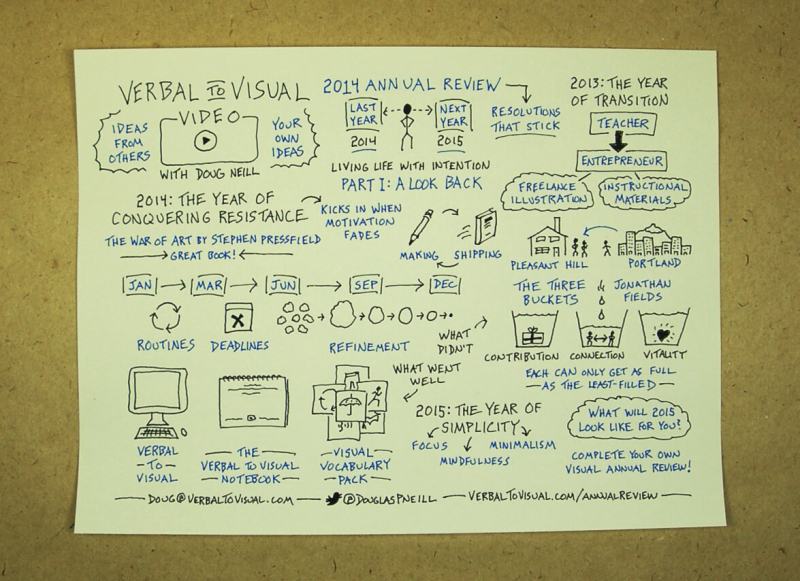 VERBAL TO VISUAL
VIDEO
IDEAS
FROM
OTHERS
YOUR
OWN
IDEAS
WITH DOUG NEILL
2014 ANNUAL REVIEW
LAST
YEAR
2014
NEXT
YEAR
2015
RESOLUTIONS
THAT STICK
LIVING LIFE WITH INTENTION
PART I: A LOOK BACK
2013: THE YEAR
OF TRANSITION
TEACHER
ENTREPRENEUR
FREELANCE
ILLUSTRATION
INSTRUCTIONAL
MATERIALS
2014: THE YEAR OF
CONQUERING RESISTANCE
KICKS IN WHEN
MOTIVATION
FADES
THE WAR OF ART BY STEPHEN PRESSFIELD
GREAT BOOK!
MAKING
SHIPPING
PLEASANT HILL
PORTLAND
JAN
MAR
JUN
SEP
DEC
ROUTINES
DEADLINES
REFINEMENT
WHAT
DIDN'T
WHAT WENT
WELL
THE THREE
BUCKETS
JONATHAN
FIELDS
CONTRIBUTION
CONNECTION
VITALITY
EACH CAN ONLY GET AS FULL
AS THE LEAST-FILLED
VERBAL
TO
VISUAL
THE
VERBAL TO VISUAL
NOTEBOOK
VISUAL
VOCABULARY
PACK
2015: THE YEAR OF
SIMPLICITY
FOCUS
MINDFULNESS
MINIMALISM
WHAT WILL 2015
LOOK LIKE FOR YOU?
COMPLETE YOUR OWN
VISUAL ANNUAL REVIEW!
DOUG@VERBALTOVISUAL.COM
@DOUGLASPNEILL
VERBALTOVISUAL.COM/ANNUALREVIEW